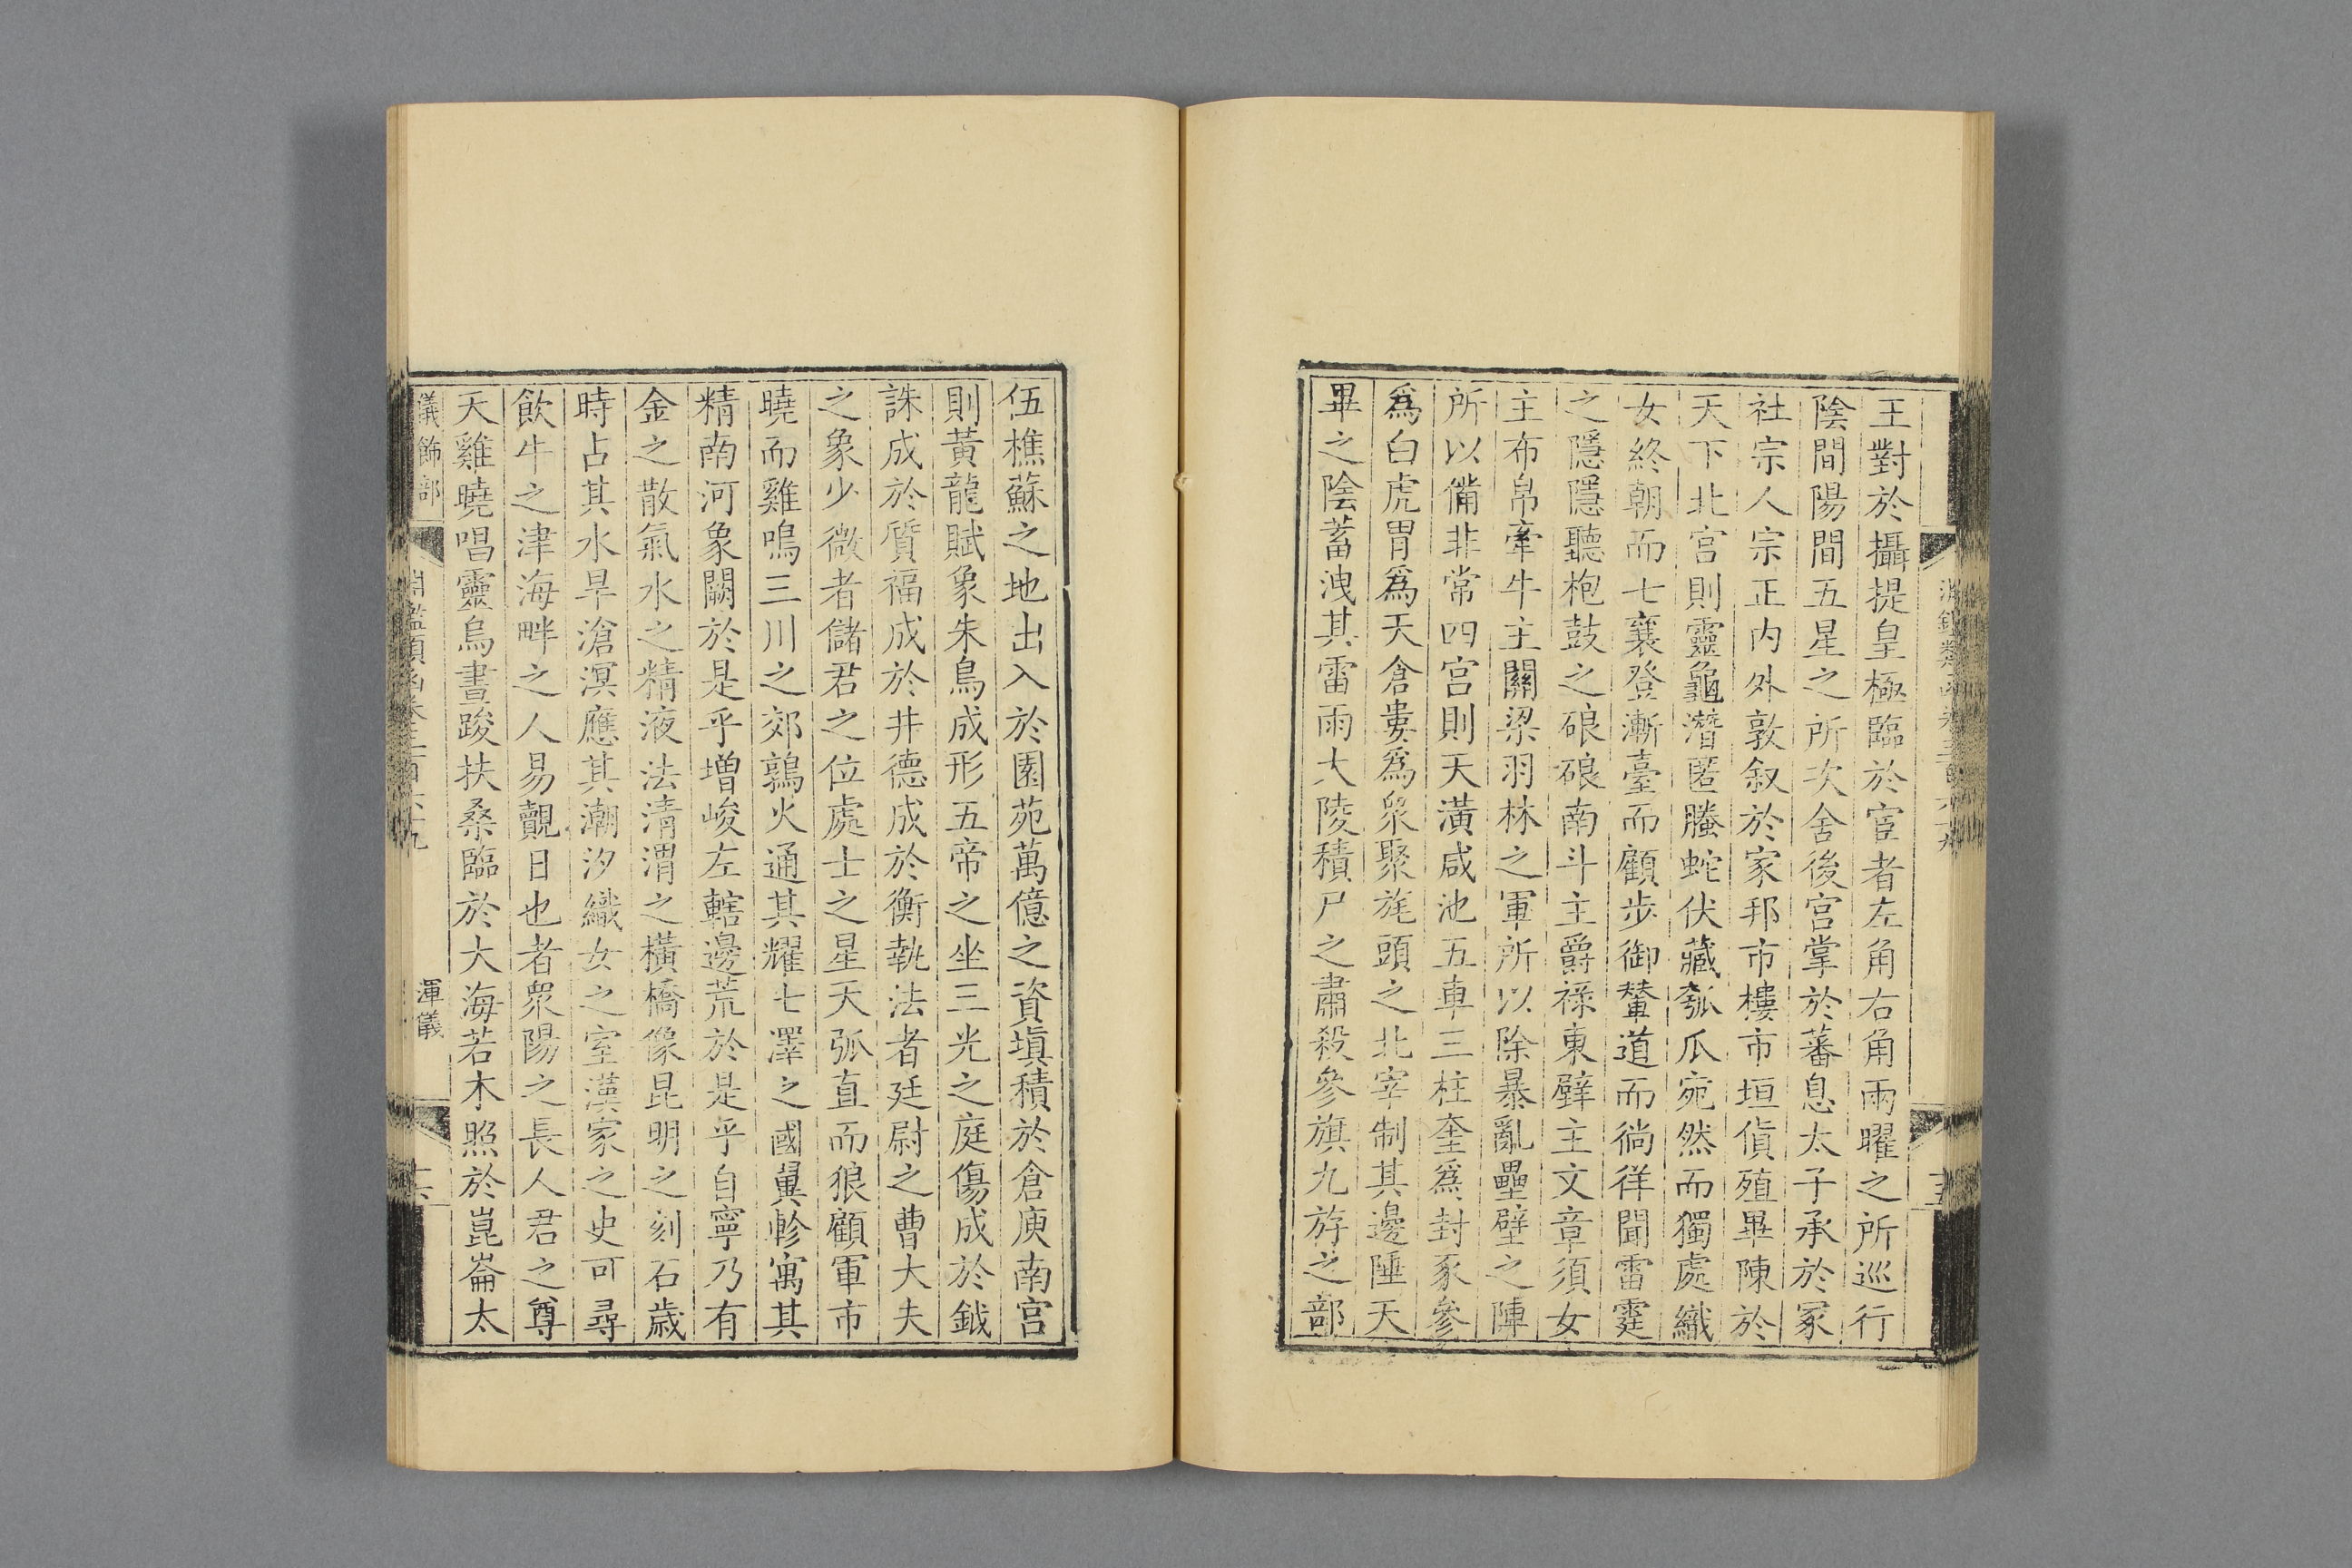 王對於攝提皇極臨於宦者左角右角兩曜之所巡行
陰間陽間五星之所次舍後宮掌於蕃息太子承於冢
社宗人宗正內外敦叙於家邦市樓市垣貨殖畢陳於
天下北宮則靈龜潛匿螣蛇伏藏瓠瓜宛然而獨處織
女終朝而七襄登漸臺而顧步御輦道而徜徉聞雷霆
之隱隱聽枹鼓之硠硠南斗主爵祿東壁主文章須女
主布帛牽牛主關梁羽林之軍所以除暴亂壘壁之陣
所以備非常四宮則天潢咸池五車三柱奎爲封豕參
爲白虎胃爲天倉婁爲衆聚旄頭之北宰制其邊陲天
畢之陰蓄洩其雷雨大陵積尸之肅殺參旗九斿之部
伍樵蘇之地出入於園苑萬億之資塡積於倉庾南宮
則黃龍賦象朱鳥成形五帝之坐三光之庭傷成於鉞
誅成於質福成於井德成於衡執法者廷尉之曹大夫
之象少微者儲君之位處士之星天弧直而狼顧軍市
曉而雞鳴三川之郊鶉火通其耀七澤之國翼軫寓其
精南河象闕於是乎增峻左轄邊荒於是乎自寧乃有
金之散氣水之精液法渭之橫橋像昆明之刻石歲
時占其水旱滄溟應其潮汐織女之室漢家之史可尋
飲牛之津海畔之人易覿日也者衆陽之長人君之尊
天雞曉唱靈烏晝踆扶桑臨於大海若木照於崑崙太
儀飾部
渾儀